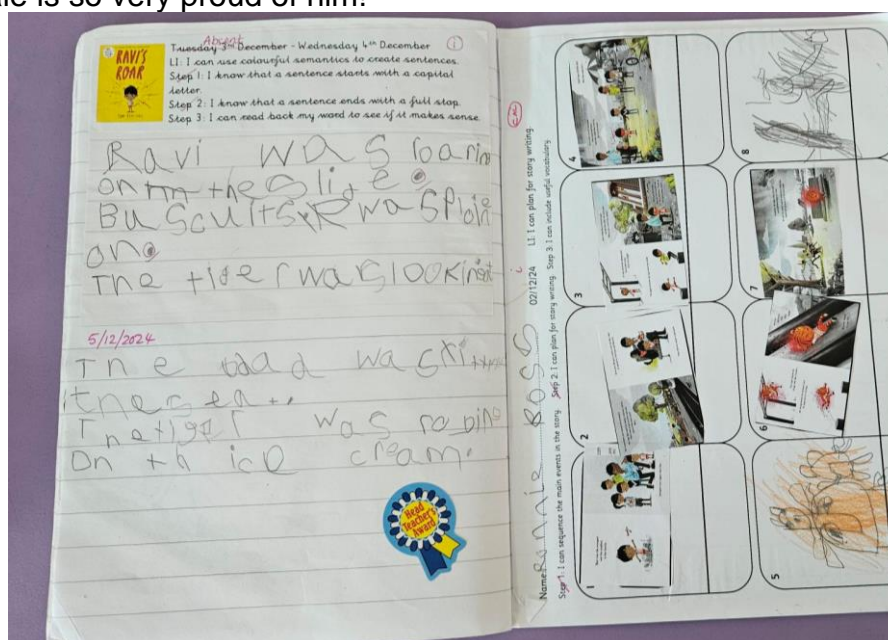 ale is so very proud of him!
Absent
Tuesday 3rd December - Wednesday 4th December
LI: I can use colourful semantics to create sentences.
Step 1: I know that a sentence starts with a capital
letter.
Step 2: I know that a sentence ends with a full stop.
Step 3: I can read back my word to see if it makes sense.
RAVI'S
ROAR
Ravi was roaring
on the slide.
was
on.
The tiger was looking
5/12/2024
The dad was
the sea
The tiger was
On th ice cream.
Head
Teacher's
Award
Name Ronnie Ross 02/12/24 LI: I can plan for story writing.
Step 1: I can sequence the main events in the story. Step 2: I can plan for story writing. Step 3: I can include useful vocabulary.
1
2
3
4
5
6
7
8